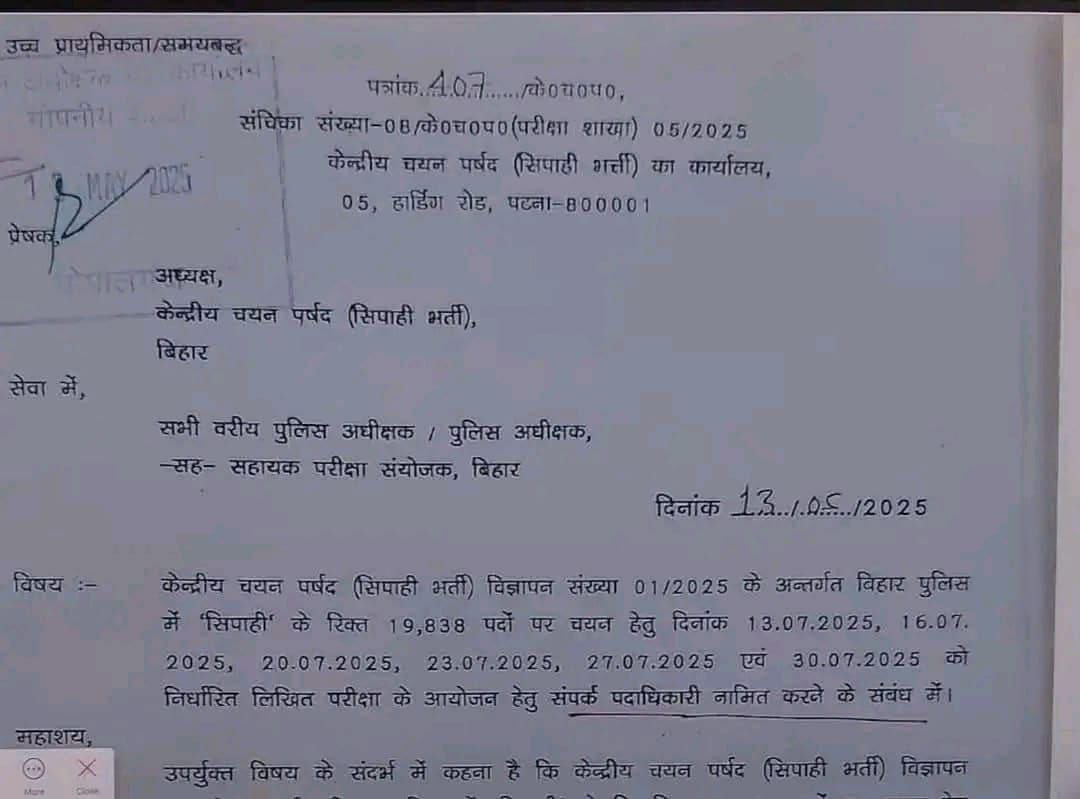 उच्च प्राथमिकता/समयबद्ध
कार्यालय
गोपनीय
पत्रांक..407....../के०च०प०,
संचिका संख्या-08/के०च०प०(परीक्षा शाखा) 05/2025
केन्द्रीय चयन पर्षद (सिपाही भर्त्ती) का कार्यालय,
05, हार्डिंग रोड, पटना-800001
MAY 2025
प्रेषक,
अध्यक्ष,
केन्द्रीय चयन पर्षद (सिपाही भर्ती),
बिहार
सेवा में,
सभी वरीय पुलिस अधीक्षक / पुलिस अधीक्षक,
-सह- सहायक परीक्षा संयोजक, बिहार
दिनांक 13../.05../2025
विषय :- केन्द्रीय चयन पर्षद (सिपाही भर्ती) विज्ञापन संख्या 01/2025 के अन्तर्गत बिहार पुलिस
में 'सिपाही' के रिक्त 19,838 पदों पर चयन हेतु दिनांक 13.07.2025, 16.07.
2025, 20.07.2025, 23.07.2025, 27.07.2025 एवं 30.07.2025 को
निर्धारित लिखित परीक्षा के आयोजन हेतु संपर्क पदाधिकारी नामित करने के संबंध में।
महाशय,
उपर्युक्त विषय के संदर्भ में कहना है कि केन्द्रीय चयन पर्षद (सिपाही भर्ती) विज्ञापन
More Close